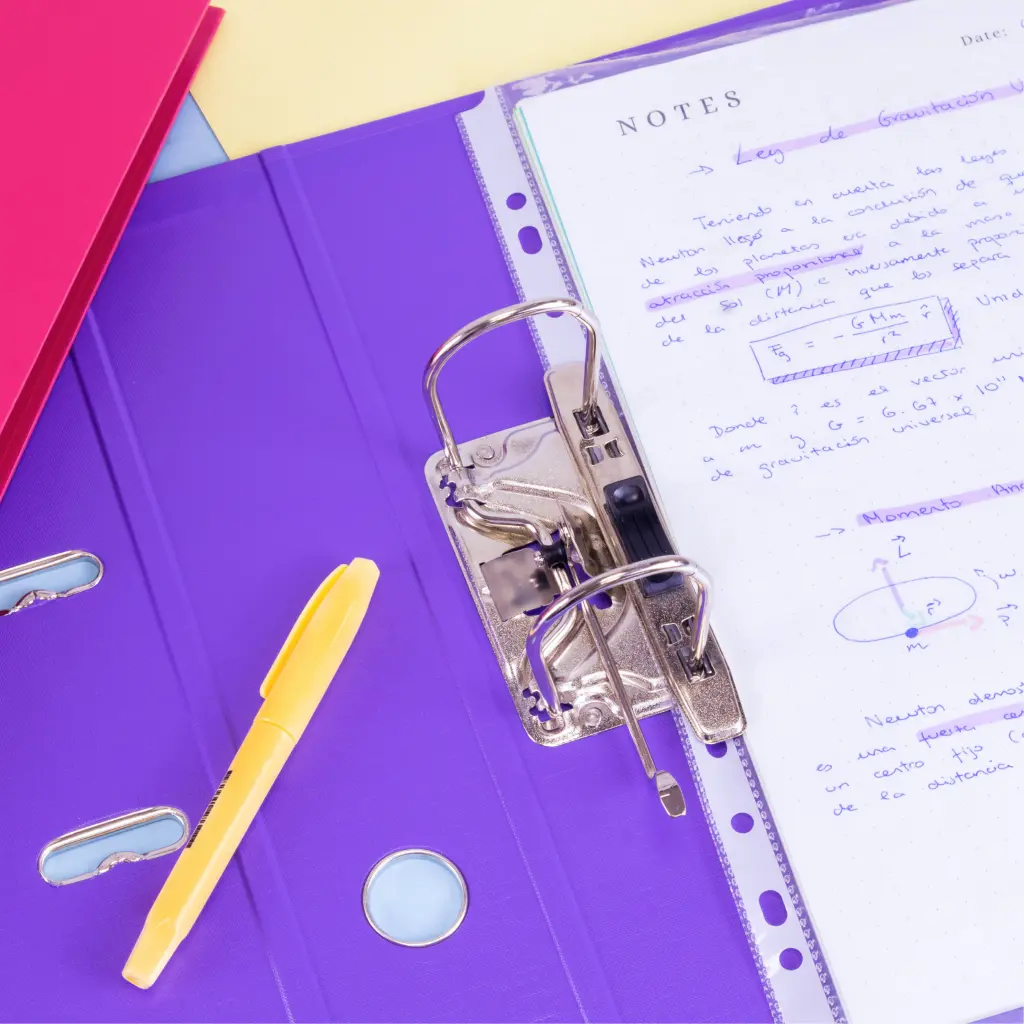 Date:
NOTES
→ Ley de Gravitación
Teniendo en cuenta las leyes
Newton llegó a la conclusión de que
de los planetas era debido a
atracción proporcional a la masa
del Sol (M) e inversamente
de la distancia que los separa
F⃗g = - G Mm / r² r̂
Donde r̂ es el vector
a m y G = 6.67 x 10¹¹
de gravitación universal.
→ Momento
L⃗
r⃗
m
Newton
es una fuerza
un centro fijo
de la distancia